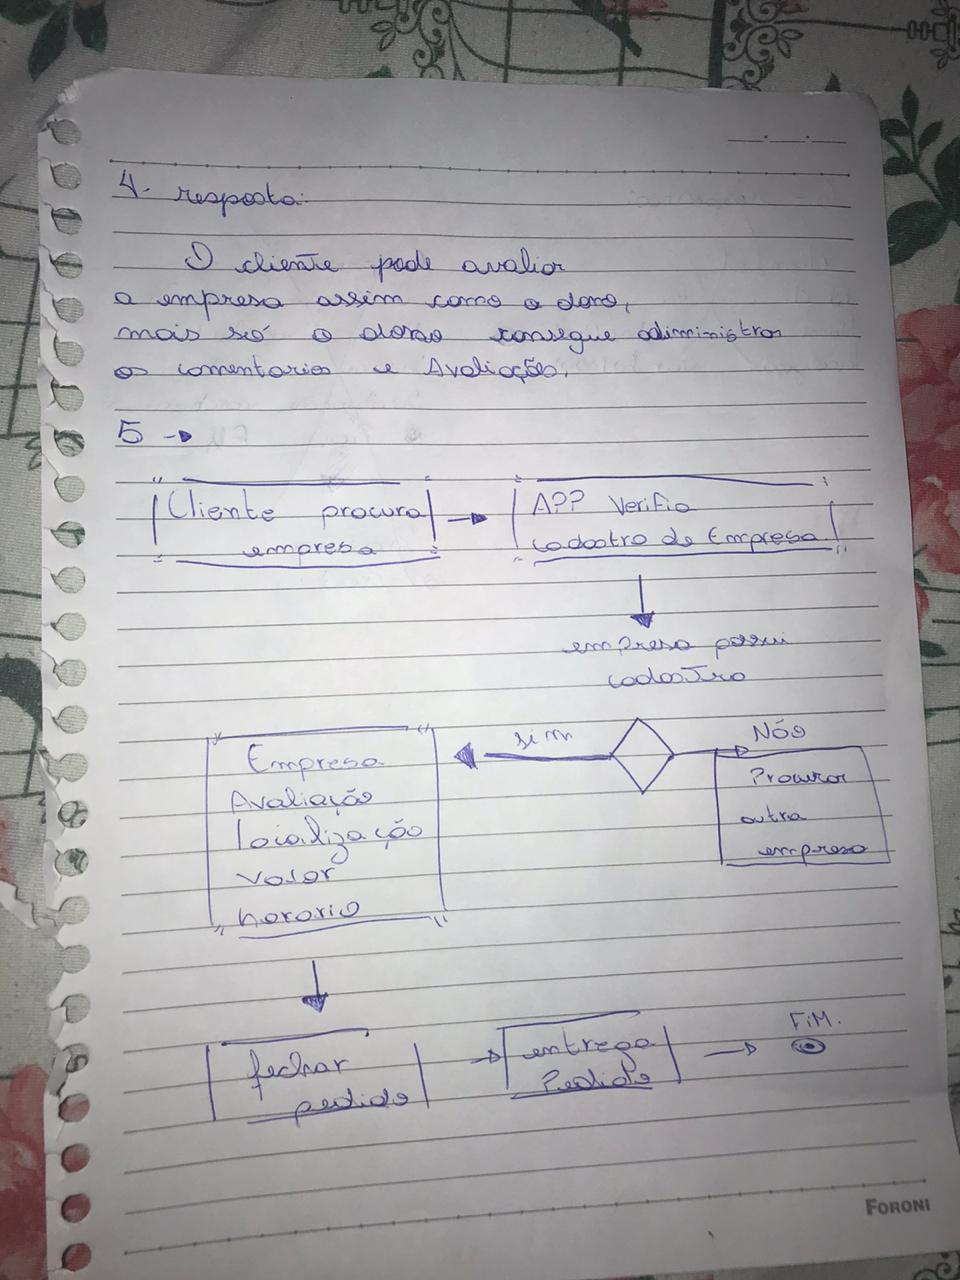 4- resposta:
O cliente pode avaliar
a empresa assim como o dono,
mais só o dono consegue administrar
os comentarios e Avaliações.
5 →
Cliente procura
empresa
APP Verifia
cadastro de Empresa
empresa possui
cadastro
sim
Não
Empresa
Avaliação
localização
valor
horario
Procurar
outra
empresa
fechar
pedido
entrega
Pedido
FiM.
FORONI